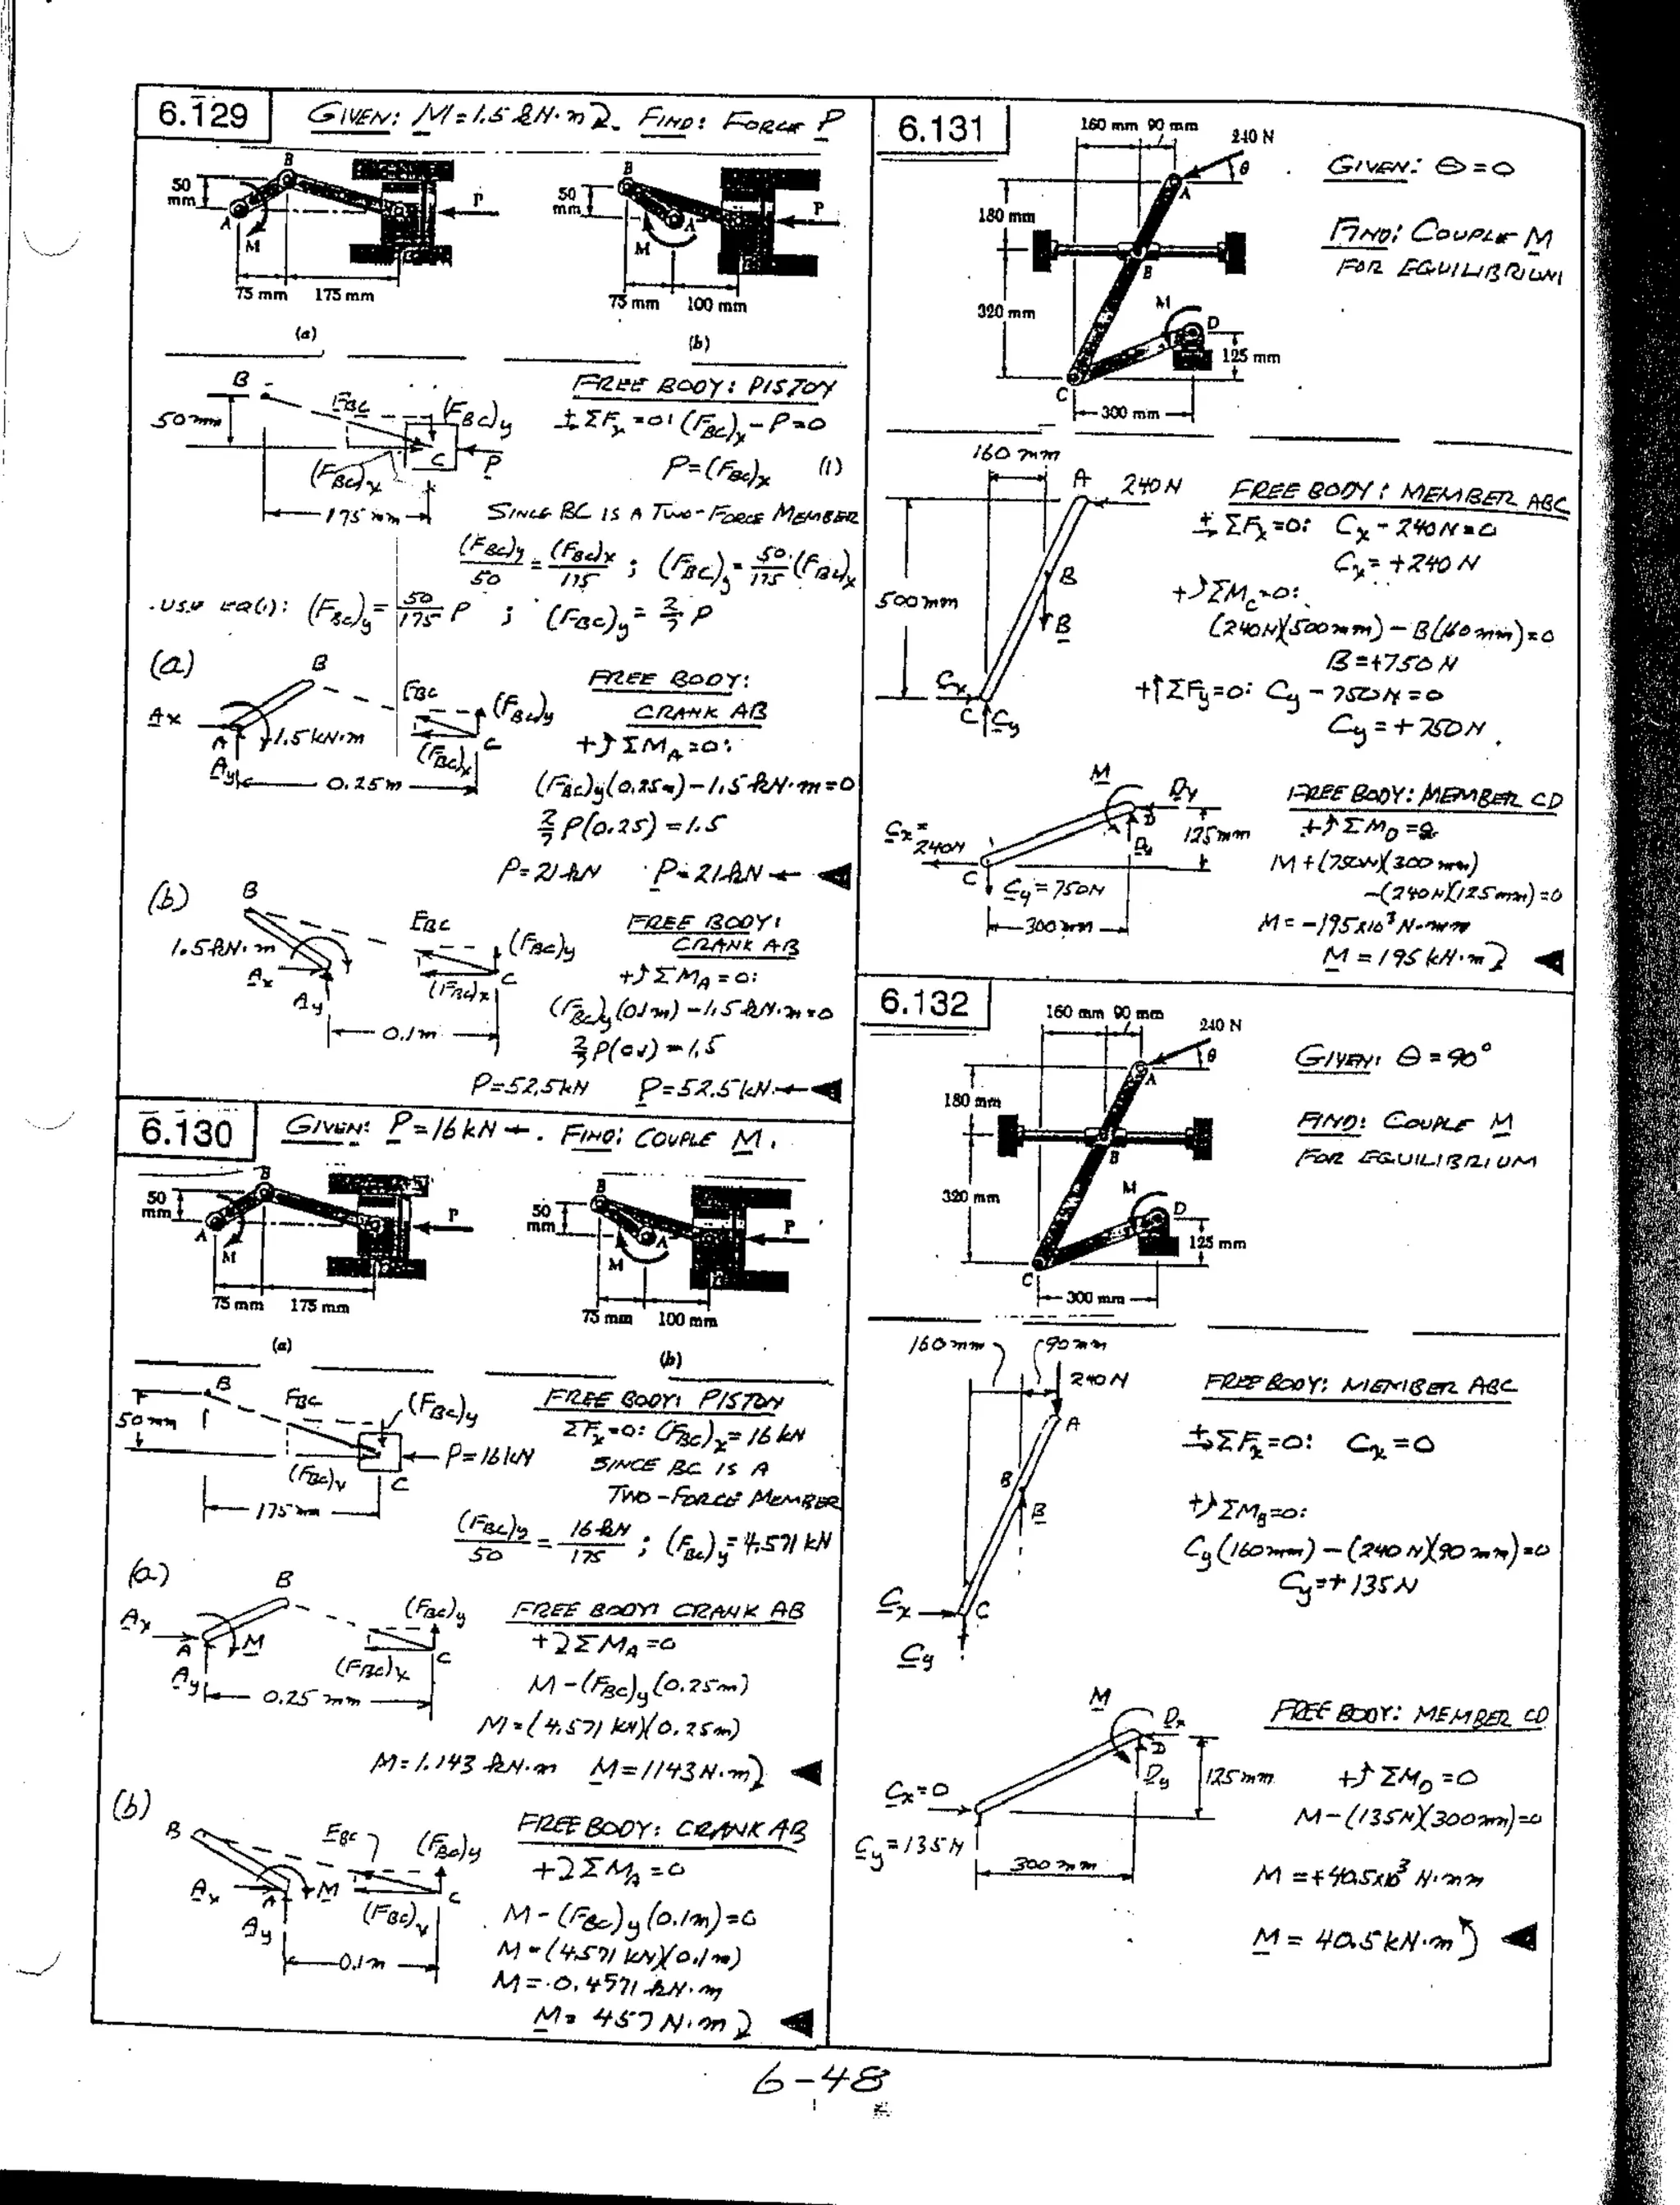 6.129
GIVEN: M = 1.5 kN·m ⤵. FIND: FORCE P
B
50 mm
A
M
P
75 mm 175 mm
(a)
B
50 mm
A
M
P
75 mm 100 mm
(b)
B
50 mm
FBC
(FBC)y
(FBC)x
C
P
175 mm
FREE BODY: PISTON
+→ ΣFx = 0: (FBC)x - P = 0
P = (FBC)x (1)
SINCE BC IS A TWO-FORCE MEMBER
(FBC)y/50 = (FBC)x/175 ; (FBC)y = 50/175 (FBC)x
USE EQ(1): (FBC)y = 50/175 P ; (FBC)y = 2/7 P
(a)
B
FBC
(FBC)y
Ax
A
1.5 kN·m
(FBC)x
C
Ay
0.25 m
FREE BODY:
CRANK AB
+↺ ΣMA = 0:
(FBC)y(0.25m) - 1.5 kN·m = 0
2/7 P(0.25) = 1.5
P = 21 kN P = 21 kN ←
(b)
B
1.5 kN·m
FBC
(FBC)y
Ax
(FBC)x
C
Ay
0.1m
FREE BODY:
CRANK AB
+↺ ΣMA = 0:
(FBC)y(0.1m) - 1.5 kN·m = 0
2/7 P(0.1) = 1.5
P = 52.5 kN P = 52.5 kN ←
6.130
GIVEN: P = 16 kN ←. FIND: COUPLE M.
B
50 mm
A
M
P
75 mm 175 mm
(a)
B
50 mm
A
M
P
75 mm 100 mm
(b)
B
50 mm
FBC
(FBC)y
P = 16 kN
(FBC)x
C
175 mm
FREE BODY: PISTON
ΣFx = 0: (FBC)x = 16 kN
SINCE BC IS A
TWO-FORCE MEMBER
(FBC)y/50 = 16 kN/175 ; (FBC)y = 4.571 kN
(a)
B
Ax
A
M
(FBC)y
(FBC)x
C
Ay
0.25 mm
FREE BODY: CRANK AB
+⤵ ΣMA = 0
M - (FBC)y(0.25m)
M = (4.571 kN)(0.25m)
M = 1.143 kN·m M = 1143 N·m ⤵
(b)
B
FBC
(FBC)y
Ax
A
M
(FBC)x
C
Ay
0.1m
FREE BODY: CRANK AB
+⤵ ΣMA = 0
M - (FBC)y(0.1m) = 0
M = (4.571 kN)(0.1m)
M = 0.4571 kN·m
M = 457 N·m ⤵
6.131
160 mm 90 mm
240 N
θ
A
180 mm
B
320 mm
M
D
125 mm
C
300 mm
GIVEN: θ = 0
FIND: COUPLE M
FOR EQUILIBRIUM
160 mm
A
240 N
B
500 mm
B
Cx
C
Cy
FREE BODY: MEMBER ABC
+→ ΣFx = 0: Cx - 240 N = 0
Cx = +240 N
+↺ ΣMC = 0:
(240 N)(500 mm) - B(160 mm) = 0
B = +750 N
+↑ ΣFy = 0: Cy - 750 N = 0
Cy = +750 N.
M
Dy
D
Dy
125 mm
Cx = 240 N
C
Cy = 750 N
300 mm
FREE BODY: MEMBER CD
+↺ ΣMD = 0
M + (750 N)(300 mm)
-(240 N)(125 mm) = 0
M = -195x10³ N·mm
M = 195 kN·m ⤵
6.132
160 mm 90 mm
240 N
θ
A
180 mm
B
320 mm
M
D
125 mm
C
300 mm
GIVEN: θ = 90°
FIND: COUPLE M
FOR EQUILIBRIUM
160 mm 90 mm
240 N
A
B
B
Cx
C
Cy
FREE BODY: MEMBER ABC
+→ ΣFx = 0: Cx = 0
+↺ ΣMB = 0:
Cy(160 mm) - (240 N)(90 mm) = 0
Cy = +135 N
M
Dx
D
Dy
125 mm
Cx = 0
Cy = 135 N
300 mm
FREE BODY: MEMBER CD
+↺ ΣMD = 0
M - (135 N)(300 mm) = 0
M = +40.5x10³ N·mm
M = 40.5 kN·m ↺
6-48